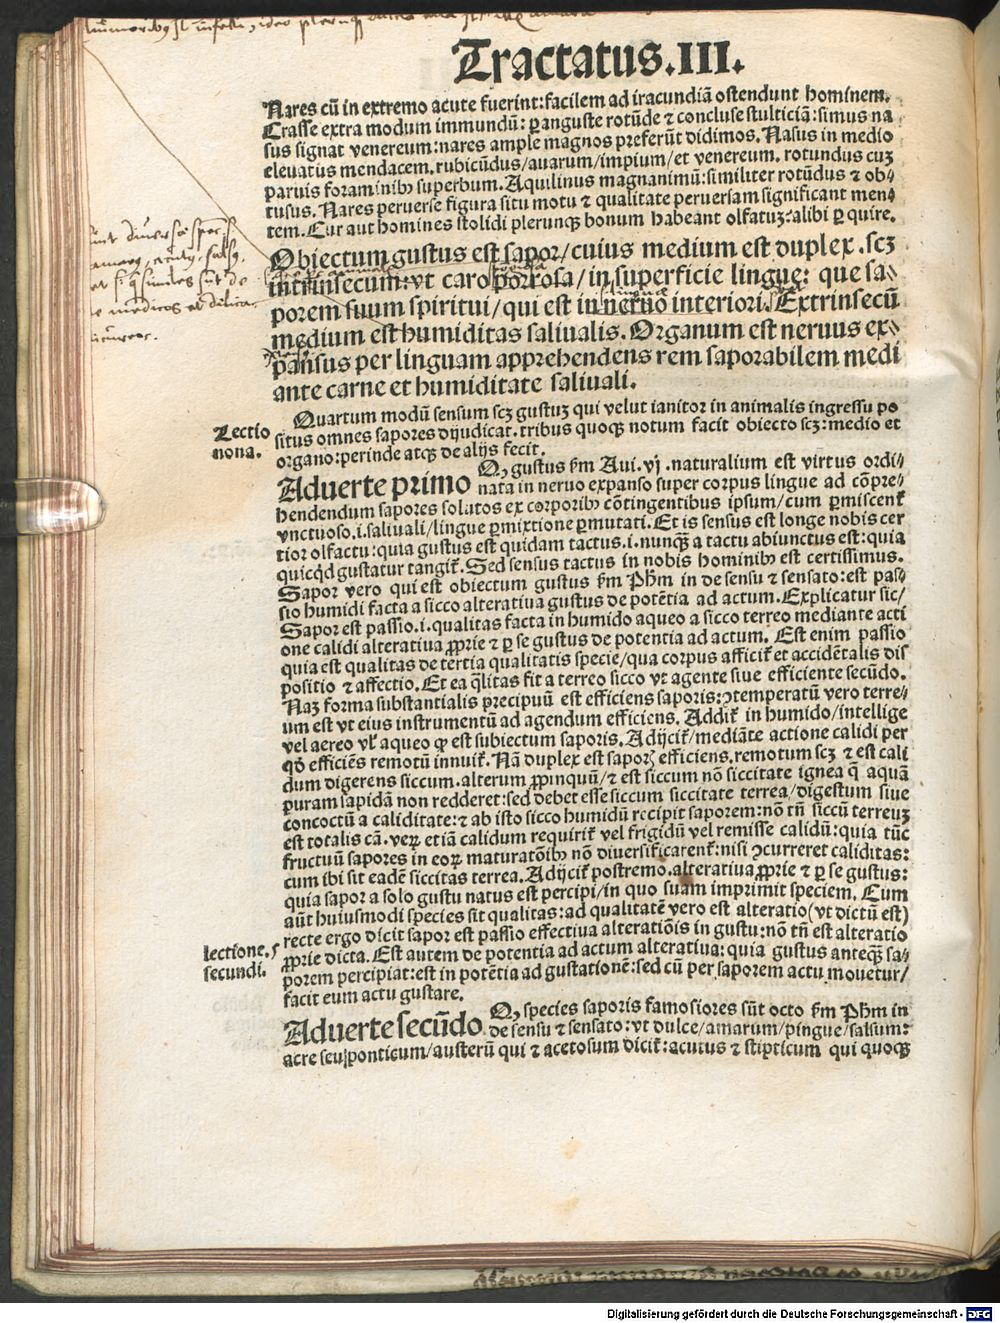 Tractatus.III.
Nares cū in extremo acute fuerint:facilem ad iracundiā ostendunt hominem.
Crasse extra modum immundū: ꝑanguste rotūde ⁊ concluse stulticiā:simus na
sus signat venereum:nares ample magnos preferūt didimos. Nasus in medio
eleuatus mendacem.rubicūdus/auarum/impium/et venereum. rotundus cuꝫ
paruis foraminibꝰ superbum. Aquilinus magnanimū:similiter rotūdus ⁊ ob⸗
tusus. Nares peruerse figura situ motu ⁊ qualitate peruersam significant men⸗
tem. Cur aut homines stolidi plerunqꝫ bonum habeant olfatuꝫ:alibi ꝑquire.
Obiectum gustus est sapor/cuius medium est duplex.scꝫ
intrinsecum:vt caro porrosa/in superficie lingue: que sa⸗
porem suum spiritui/qui est in neruo interiori. Extrinsecū
medium est humiditas saliualis. Organum est neruus ex⸗
pansus per linguam apprehendens rem saporabilem medi
ante carne et humiditate saliuali.
Lectio
nona.
Quartum modū sensum scꝫ gustuꝫ qui velut ianitor in animalis ingressu po
situs omnes sapores dijudicat.tribus quoqꝫ notum facit obiecto scꝫ:medio et
organo:perinde atqꝫ de alijs fecit.
Aduerte primo Qꝫ gustus ẜm Aui.vj.naturalium est virtus ordi⸗
nata in neruo expanso super corpus lingue ad cōpre⸗
hendendum sapores solutos ex corporibꝰ cōtingentibus ipsum/cum ꝑmiscent̄
vnctuoso.i.saliuali/lingue ꝑmixtione ꝑmutati. Et is sensus est longe nobis cer
tior olfactu:quia gustus est quidam tactus.i.nunqꝫ a tactu abiunctus est:quia
quicqd gustatur tangit̄. Sed sensus tactus in nobis hominibꝰ est certissimus.
Sapor vero qui est obiectum gustus ẜm Phm in de sensu ⁊ sensato:est pas⸗
sio humidi facta a sicco alteratiua gustus de potētia ad actum. Explicatur sic/
Sapor est passio.i.qualitas facta in humido aqueo a sicco terreo mediante acti
one calidi alteratiua ꝓprie ⁊ ꝑ se gustus de potentia ad actum. Est enim passio
quia est qualitas de tertia qualitatis specie/qua corpus afficit̄ et accidētalis dis
positio ⁊ affectio. Et ea qlitas fit a terreo sicco vt agente siue efficiente secūdo.
Naꝫ forma substantialis precipuū est efficiens saporis:ꝯtemperatū vero terre⸗
um est vt eius instrumentū ad agendum efficiens. Addit̄ in humido/intellige
vel aereo vl' aqueo qꝫ est subiectum saporis. Adijcit̄/mediāte actione calidi per
qd efficiēs remotū innuit̄. Nā duplex est saporꝝ efficiens.remotum scꝫ ⁊ est cali
dum digerens siccum.alterum ꝓpinquū/⁊ est siccum nō siccitate ignea q̄ aquā
puram sapidā non redderet:sed debet esse siccum siccitate terrea/digestum siue
concoctū a caliditate:⁊ ab isto sicco humidū recipit saporem:nō tn̄ siccū terreuꝫ
est totalis cā.veꝝ etiā calidum requirit̄ vel frigidū vel remisse calidū:quia tūc
fructuū sapores in eoꝝ maturatōibꝰ nō diuersificarent̄:nisi ꝯcurreret caliditas:
cum ibi sit eadē siccitas terrea. Adijcit̄ postremo.alteratiua ꝓprie ⁊ ꝑ se gustus:
quia sapor a solo gustu natus est percipi/in quo suam imprimit speciem. Cum
aūt huiusmodi species sit qualitas:ad qualitatē vero est alteratio(vt dictū est)
lectione.5
secundi.
recte ergo dicit sapor est passio effectiua alteratiōis in gustu:nō tn̄ est alteratio
ꝓprie dicta. Est autem de potentia ad actum alteratiua:quia gustus anteqꝫ sa⸗
porem percipiat:est in potētia ad gustationē:sed cū per saporem actu mouetur/
facit eum actu gustare.
Aduerte secūdo Qꝫ species saporis famosiores sūt octo ẜm Phm in
de sensu ⁊ sensato:vt dulce/amarum/pingue/salsum:
acre seu ponticum/austerū qui ⁊ acetosum dicit̄:acutus ⁊ stipticum qui quoqꝫ
Digitalisierung gefördert durch die Deutsche Forschungsgemeinschaft - DFG